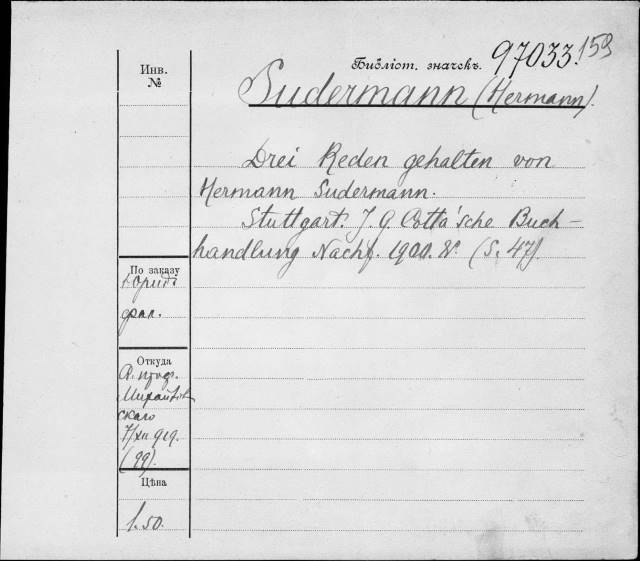 Инв.
№
Библіот. значекъ. 97033.
159
Sudermann (Hermann).
Drei Reden gehalten von
Hermann Sudermann.
Stuttgart. J. G. Cotta'sche Buch-
handlung Nachf. 1900. 8°. (S. 47).
По заказу
Юрид.
фак.
Откуда
проф.
Михайлов
скаго
7/XII 919.
(99).
Цѣна
1.50.